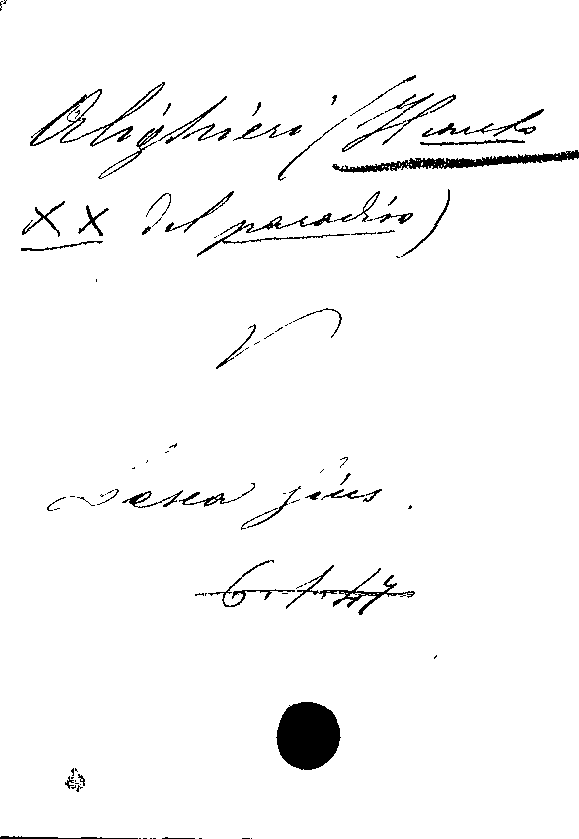 Alighieri (Il canto
XX del paradiso)
V
Lasca gius.
6.1.47